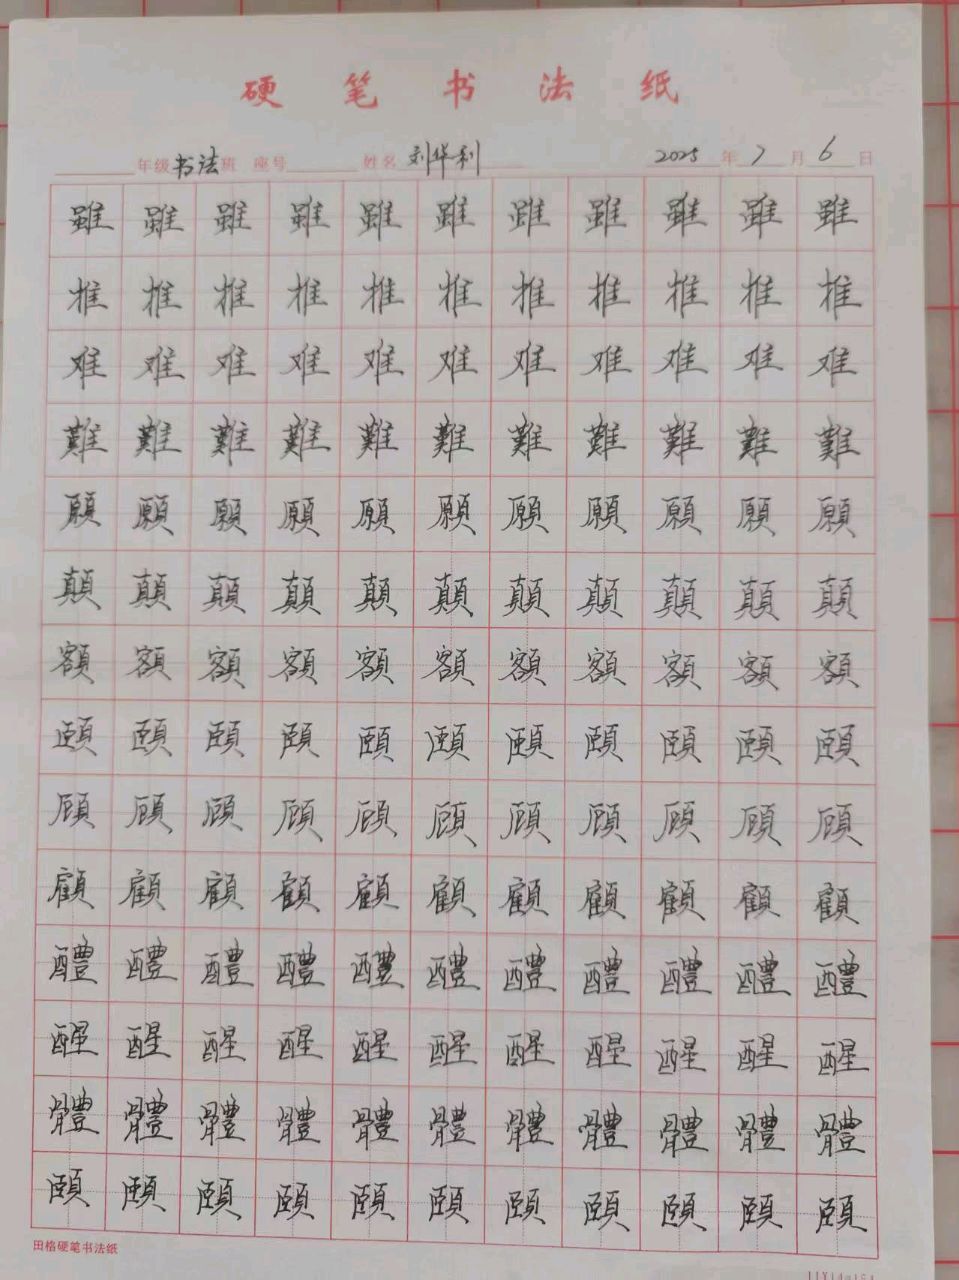 硬笔书法纸
年级书法班 座号 姓名刘华利 2025年7月6日
雖雖雖雖雖雖雖雖雖雖雖
推推推推推推推推推推推
难难难难难难难难难难难
難難難難難難難難難難難
願願願願願願願願願願願
顛顛顛顛顛顛顛顛顛顛顛
額額額額額額額額額額額
頤頤頤頤頤頤頤頤頤頤頤
顾顾顾顾顾顾顾顾顾顾顾
顧顧顧顧顧顧顧顧顧顧顧
醴醴醴醴醴醴醴醴醴醴醴
醒醒醒醒醒醒醒醒醒醒醒
體體體體體體體體體體體
頤頤頤頤頤頤頤頤頤頤頤
田格硬笔书法纸